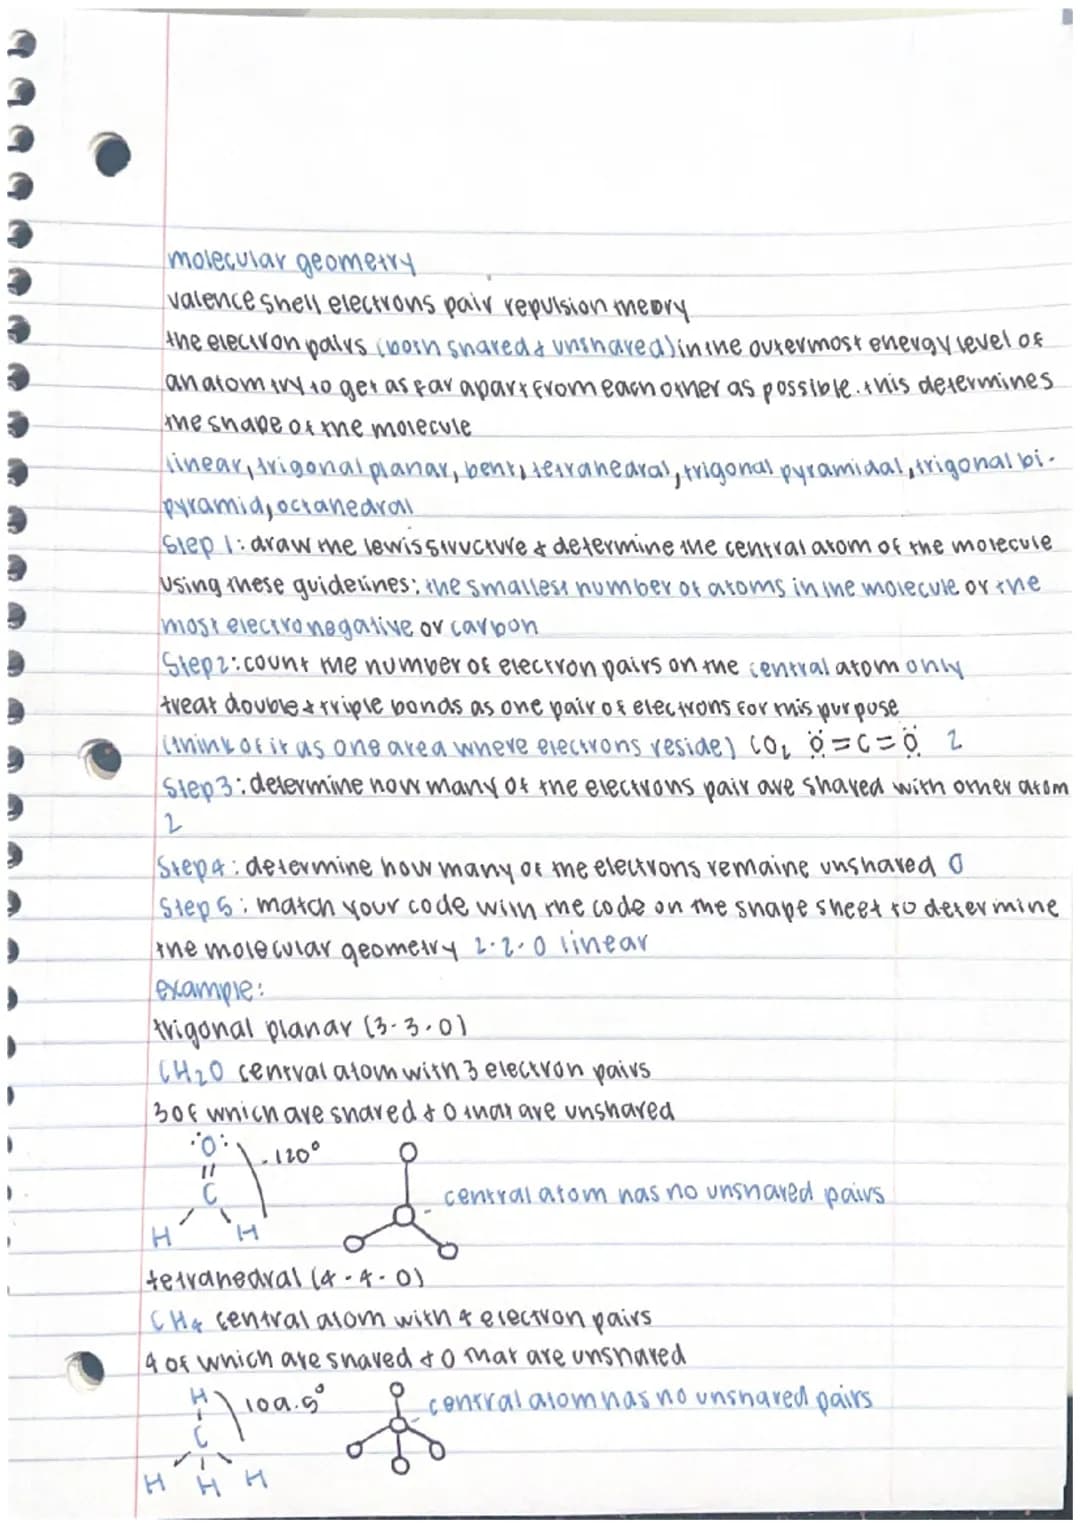 molecular geometry
valence shell electrons pair repulsion theory
the electron pairs (both shared & unshared) in the outermost energy level of
an atom try to get as far apart from each other as possible. this determines
the shape of the molecule
linear, trigonal planar, bent, tetrahedral, trigonal pyramidal, trigonal bi-
pyramid, octahedral
Step 1: draw the lewis structure & determine the central atom of the molecule
using these guidelines: the smallest number of atoms in the molecule or the
most electronegative or carbon
Step 2: count the number of electron pairs on the central atom only
treat double & triple bonds as one pair of electrons for this purpose
(think of it as one area where electrons reside) CO₂ Ö=C=Ö 2
Step 3: determine how many of the electrons pair are shared with other atom
2
Step 4: determine how many of the electrons remaine unshared 0
Step 5: match your code with the code on the shape sheet to determine
the molecular geometry 2-2-0 linear
example:
trigonal planar (3-3-0)
CH₂O central atom with 3 electron pairs
3 of which are shared & 0 that are unshared
:O: 120°
C central atom has no unshared pairs
H H
tetrahedral (4-4-0)
CH₄ central atom with 4 electron pairs
4 of which are shared & 0 that are unshared
H 109.5° central atom has no unshared pairs
C
H H H